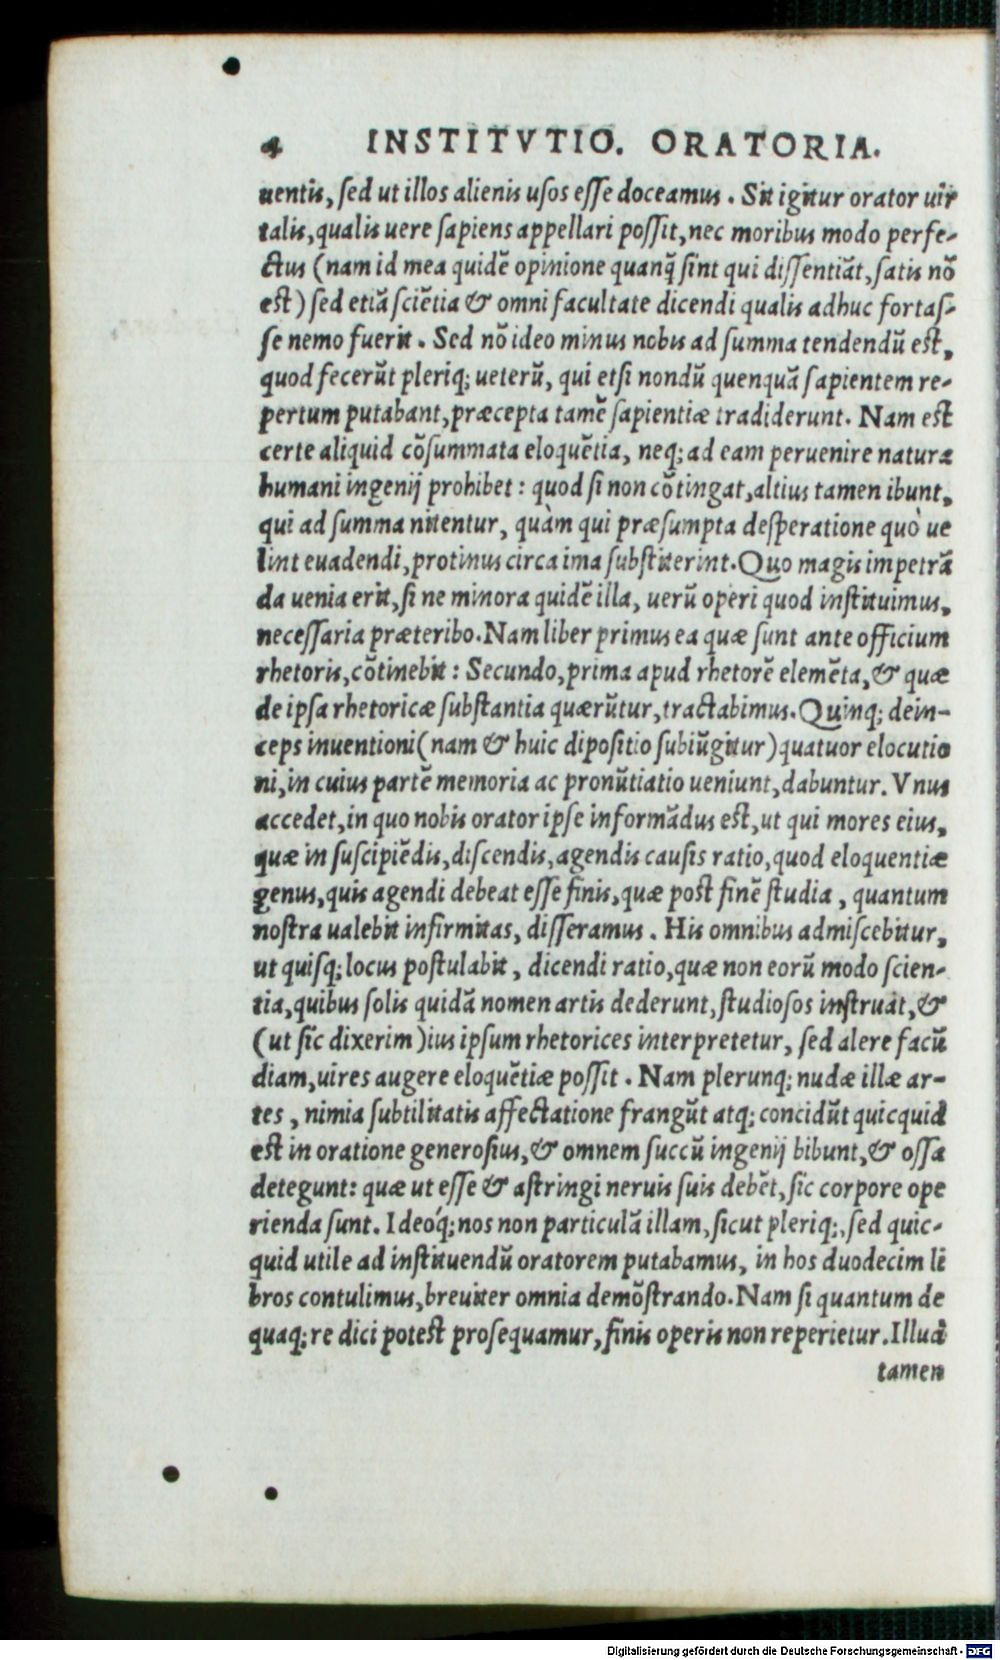 4 INSTITVTIO. ORATORIA.
uentis, sed ut illos alienis usos esse doceamus. Sit igitur orator uir
talis, qualis uere sapiens appellari possit, nec moribus modo perfe-
ctus (nam id mea quidē opinione quanq̄ sint qui dissentiāt, satis nō
est) sed etiā sciētia & omni facultate dicendi qualis adhuc fortas-
se nemo fuerit. Sed nō ideo minus nobis ad summa tendendū est,
quod fecerūt pleriq; ueterū, qui etsi nondū quenquā sapientem re-
pertum putabant, præcepta tamē sapientiæ tradiderunt. Nam est
certe aliquid cōsummata eloquētia, neq; ad eam peruenire natura
humani ingenij prohibet: quod si non cōtingat, altius tamen ibunt,
qui ad summa nitentur, quàm qui præsumpta desperatione quò ue
lint euadendi, protinus circa ima substiterint. Quo magis impetrā
da uenia erit, si ne minora quidē illa, uerū operi quod instituimus,
necessaria præteribo. Nam liber primus ea quæ sunt ante officium
rhetoris, cōtinebit: Secundo, prima apud rhetorē elemēta, & quæ
de ipsa rhetoricæ substantia quærūtur, tractabimus. Quinq; dein-
ceps inuentioni (nam & huic dipositio subiūgitur) quatuor elocutio
ni, in cuius partē memoria ac pronūtiatio ueniunt, dabuntur. Vnus
accedet, in quo nobis orator ipse informādus est, ut qui mores eius,
quæ in suscipiēdis, discendis, agendis causis ratio, quod eloquentiæ
genus, quis agendi debeat esse finis, quæ post finē studia, quantum
nostra ualebit infirmitas, disseramus. His omnibus admiscebitur,
ut quisq; locus postulabit, dicendi ratio, quæ non eorū modo scien-
tia, quibus solis quidā nomen artis dederunt, studiosos instruat, &
(ut sic dixerim) ius ipsum rhetorices interpretetur, sed alere facū
diam, uires augere eloquētiæ possit. Nam plerunq; nudæ illæ ar-
tes, nimia subtilitatis affectatione frangūt atq; concidūt quicquid
est in oratione generosius, & omnem succū ingenij bibunt, & ossa
detegunt: quæ ut esse & astringi neruis suis debēt, sic corpore ope
rienda sunt. Ideóq; nos non particulā illam, sicut pleriq;, sed quic-
quid utile ad instituendū oratorem putabamus, in hos duodecim li
bros contulimus, breuiter omnia demōstrando. Nam si quantum de
quaq; re dici potest prosequamur, finis operis non reperietur. Illud
tamen
Digitalisierung gefördert durch die Deutsche Forschungsgemeinschaft - DFG